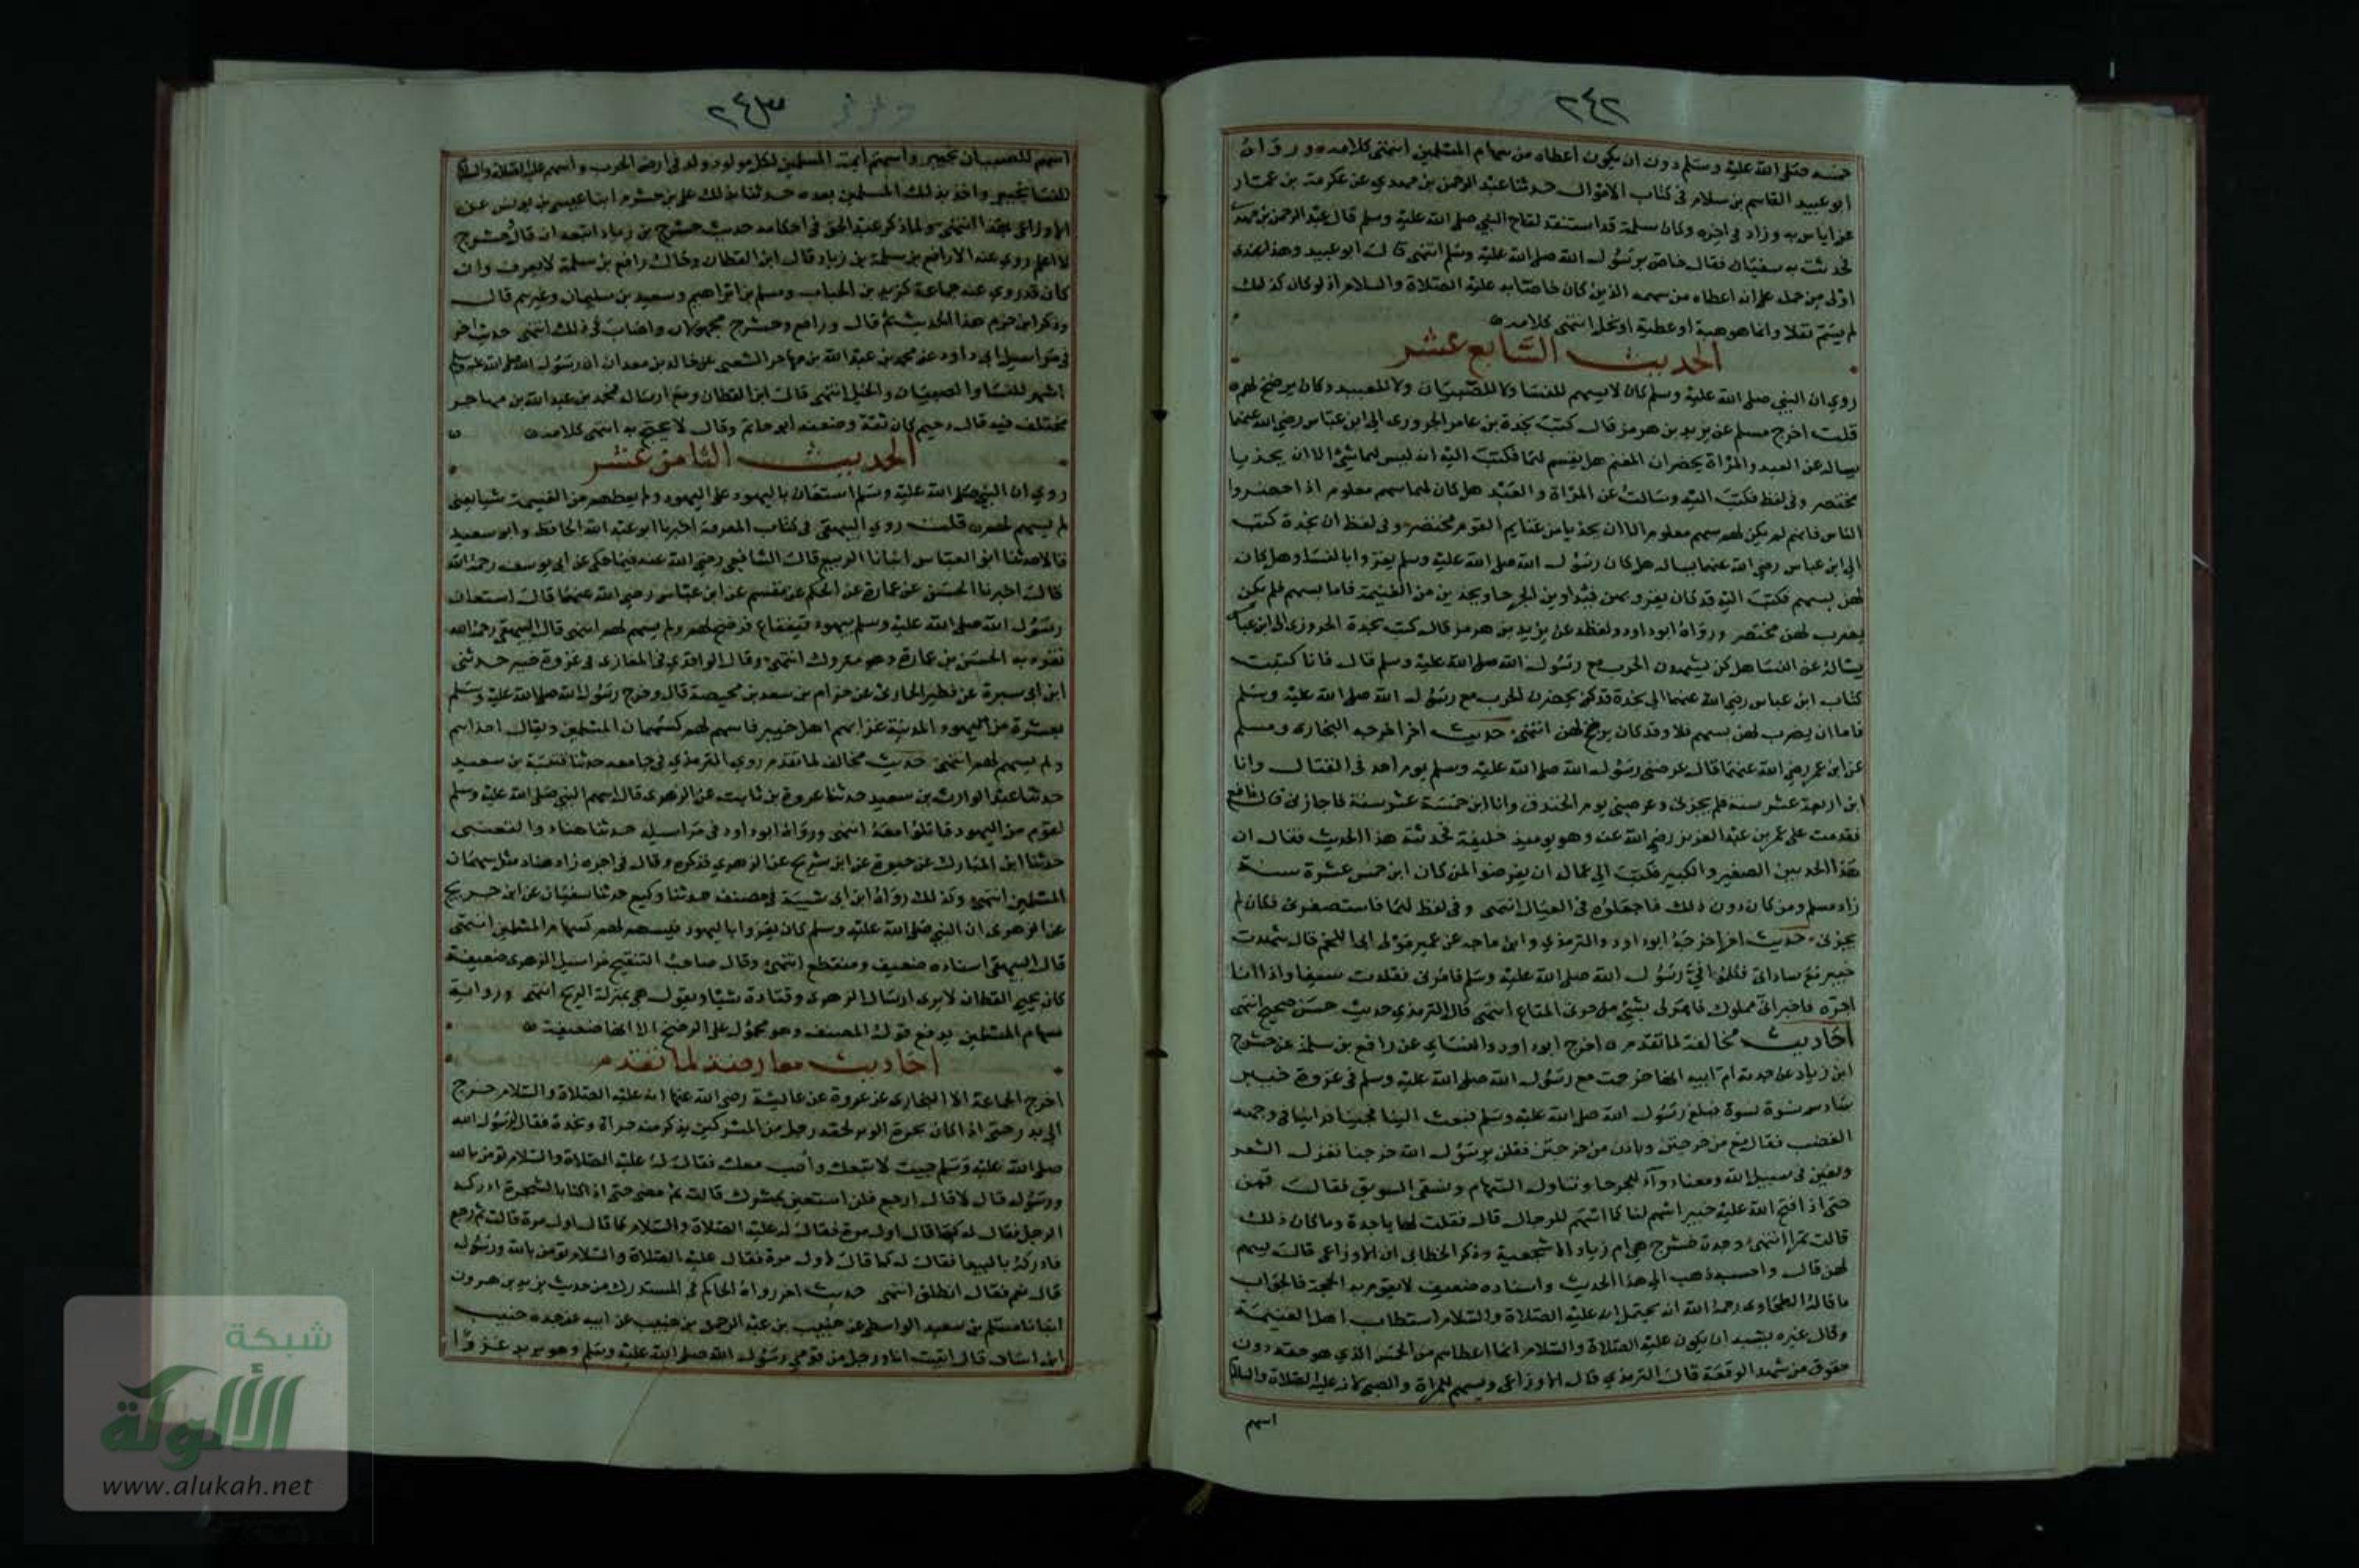 ٢٤٢
خمسه صلى الله عليه وسلم دون ان يكون اعطاه من سهام المسلمين انتهى كلامه ورواه
ابو عبيد القاسم بن سلام في كتاب الاموال حدثنا عبد الرحمن بن مهدي عن عكرمة بن عمار
عن اياس به وزاد في اخره وكان سلمة قد استنقذ لقاح النبي صلى الله عليه وسلم قال عبد الرحمن بن مهدي
فحدثت به سفيان فقال خاص برسول الله صلى الله عليه وسلم انتهى قال ابو عبيد وهذا عندي
اولى من حمل على انه اعطاه من سهمه الذي كان خاصا به عليه الصلاة والسلام اذ لو كان كذلك
لم يسم نفلا وانما هو هبة او عطية او نحل انتهى كلامه
الحديث السابع عشر
روي ان النبي صلى الله عليه وسلم كان لا يسهم للنسا ولا للصبيان ولا للعبيد وكان يرضخ لهم
قلت اخرج مسلم عن يزيد بن هرمز قال كتب نجدة بن عامر الحروري الى ابن عباس رضي الله عنهما
يساله عن العبد والمراة يحضران المغنم هل يقسم لهما فكتب اليه انه ليس لهما شيء الا ان يحذيا
مختصر وفي لفظ فكتب اليه وسالت عن المراة والعبد هل كان لهما سهم معلوم اذا حضروا
الناس فانهم لم يكن لهم سهم معلوم الا ان يحذيا من غنايم القوم مختصر وفي لفظ ان نجدة كتب
الى ابن عباس رضي الله عنهما يساله هل كان رسول الله صلى الله عليه وسلم يغزوا بالنسا وهل كان
لهن بسهم فكتب اليه قد كان يغزو بهن فيداوين الجرحا ويحذين من الغنيمة فاما بسهم فلم يكن
يضرب لهن مختصر ورواه ابو داود ولفظه عن يزيد بن هرمز قال كتب نجدة الحروري الى ابن عباس
يساله عن النسا هل كن يشهدن الحرب مع رسول الله صلى الله عليه وسلم قال فانا كتبت
كتاب ابن عباس رضي الله عنهما الى نجدة قد كن يحضرن الحرب مع رسول الله صلى الله عليه وسلم
فاما ان يضرب لهن بسهم فلا وقد كان يرضخ لهن انتهى حديث اخر اخرجه البخاري ومسلم
عن ابن عمر رضي الله عنهما قال عرضني رسول الله صلى الله عليه وسلم يوم احد في القتال وانا
ابن اربعة عشر سنة فلم يجزني وعرضني يوم الخندق وانا ابن خمسة عشر سنة فاجازني قال نافع
فقدمت على عمر بن عبد العزيز رضي الله عنه وهو يوميذ خليفة فحدثته هذا الحديث فقال ان
هذا الحد بين الصغير والكبير فكتب الى عماله ان يفرضوا لمن كان ابن خمس عشرة سنة
زاد مسلم ومن كان دون ذلك فاجعلوه في العيال انتهى وفي لفظ لهما فاستصغرني فكان لم
يجزني حديث اخر اخرجه ابو داود والترمذي وابن ماجه عن عمير مولى ابي اللحم قال شهدت
خيبر مع ساداتي فكلموا في رسول الله صلى الله عليه وسلم فامرني فقلدت سيفا واذا انا
اجره فاخبر اني مملوك فامر لي بشيء من خرثي المتاع انتهى قال الترمذي حديث حسن صحيح انتهى
احاديث مخالفة لما تقدم اخرج ابو داود والنساي عن رافع بن سلمة عن حشرج
ابن زياد عن جدته ام ابيه انها خرجت مع رسول الله صلى الله عليه وسلم في غزوة خيبر
سادس ستة نسوة فبلغ رسول الله صلى الله عليه وسلم فبعث الينا فجينا فراينا في وجهه
الغضب فقال مع من خرجتن وباذن من خرجتن فقلن يرسول الله خرجنا نغزل الشعر
ونعين في سبيل الله ومعنا دواء للجرحا ونناول السهام ونسقي السويق فقال قمن
حتى اذا فتح الله عليه خيبر اسهم لنا كما اسهم للرجال قال فقلت لها يا جدة وما كان ذلك
قالت تمرا انتهى وجدة حشرج هي ام زياد الاشجعية وذكر الخطابي ان الاوزاعي قال يسهم
لهن قال واحسبه ذهب الى هذا الحديث واسناده ضعيف لا تقوم به الحجة فالجواب
ما قاله الطحاوي رحمه الله انه يحتمل انه عليه الصلاة والسلام استطاب اهل الغنيمة
وقال غيره يشبه ان يكون عليه الصلاة والسلام انما اعطاهم من الخمس الذي هو حقه دون
حقوق من شهد الوقعة قال الترمذي قال الاوزاعي ويسهم للمراة والصبي لانه عليه الصلاة والسلام
اسهم
٢٤٣
اسهم للصبيان بخيبر واسهم ايمة المسلمين لكل مولود ولد في ارض الحرب واسهم عليه الصلاة والسلام
للنسا بخيبر واخذ بذلك المسلمين بعده حدثنا بذلك علي بن خشرم انبا عيسى بن يونس عن
الاوزاعي بهذا انتهى ولما ذكر عبد الحق في احكامه حديث حشرج بن زياد اتبعه ان قال حشرج
لا اعلم روي عنه الا رافع بن سلمة بن زياد قال ابن القطان وحال رافع بن سلمة لا يعرف وان
كان قد روي عنه جماعة كزيد بن الحباب ومسلم بن ابراهيم وسعيد بن سليمان وغيرهم قال
وذكر ابن حزم هذا الحديث ثم قال ورافع وحشرج مجهولان واصاب في ذلك انتهى حديث اخر
في مراسيل ابي داود عن محمد بن عبد الله بن مهاجر الشعيبي عن خالد بن معدان ان رسول الله صلى الله عليه وسلم
اسهم للنسا والصبيان والخيل انتهى قال ابن القطان ومع ارساله فمحمد بن عبد الله بن مهاجر
مختلف فيه قال دحيم كان ثقة وضعفه ابو حاتم وقال لا يحتج به انتهى كلامه
الحديث الثامن عشر
روي ان النبي صلى الله عليه وسلم استعان باليهود على اليهود ولم يعطهم من الغنيمة شيا يعني
لم يسهم لهم قلت روي البيهقي في كتاب المعرفة اخبرنا ابو عبد الله الحافظ وابو سعيد
قالا حدثنا ابو العباس انبانا الربيع قال الشافعي رضي الله عنه فيما حكى عن ابي يوسف رحمه الله
قال اخبرنا الحسن عن عمارة عن الحكم عن مقسم عن ابن عباس رضي الله عنهما قال استعان
رسول الله صلى الله عليه وسلم بيهود قينقاع فرضخ لهم ولم يسهم لهم انتهى قال البيهقي رحمه الله
تفرد به الحسن بن عمارة وهو متروك انتهى وقال الواقدي في المغازي في غزوة خيبر حدثني
ابن ابي سبرة عن فطير الحارثي عن حزام بن سعد بن محيصة قال وخرج رسول الله صلى الله عليه وسلم
بعشرة من اليهود المدينة غزا بهم اهل خيبر فاسهم لهم كسهمان المسلمين ويقال احذاهم
ولم يسهم لهم انتهى حديث مخالف لما تقدم روي الترمذي في جامعه حدثنا قتيبة بن سعيد
حدثنا عبد الوارث بن سعيد حدثنا عروة بن ثابت عن الزهري قال اسهم النبي صلى الله عليه وسلم
لقوم من اليهود قاتلوا معه انتهى ورواه ابو داود في مراسيله حدثنا هناد والقعنبي
حدثنا ابن المبارك عن حيوة عن ابن شريح عن الزهري فذكره وقال في اخره زاد هناد مثل سهمان
المسلمين انتهى وكذلك رواه ابن ابي شيبة في مصنفه حدثنا وكيع حدثنا سفيان عن ابن جريج
عن الزهري ان النبي صلى الله عليه وسلم كان يغزوا باليهود فيسهم لهم كسهام المسلمين انتهى
قال البيهقي اسناده ضعيف ومنقطع انتهى وقال صاحب التنقيح مراسيل الزهري ضعيفة
كان يحيى القطان لا يرى ارسال الزهري وقتادة شيا ويقول هي بمنزلة الريح انتهى ورواية
سهام المسلمين يدفع قول المصنف وهو محمول على الرضخ الا انها ضعيفة
احاديث معارضة لما تقدم
اخرج الجماعة الا البخاري عن عروة عن عايشة رضي الله عنها انه عليه الصلاة والسلام خرج
الى بدر حتى اذا كان بحرة الوبر لحقه رجل من المشركين يذكر منه جراة ونجدة فقال لرسول الله
صلى الله عليه وسلم جيت لاتبعك واصب معك فقال له عليه الصلاة والسلام تومن بالله
ورسوله قال لا قال ارجع فلن استعين بمشرك قالت ثم مضى حتى اذا كنا بالشجرة ادركه
الرجل فقال له كما قال اول مرة فقال له عليه الصلاة والسلام كما قال اول مرة قالت ثم رجع
فادركه بالبيدا فقال له كما قال اول مرة فقال عليه الصلاة والسلام تومن بالله ورسوله
قال نعم فقال انطلق انتهى حديث اخر رواه الحاكم في المستدرك من حديث يزيد بن هرون
انبانا مستلم بن سعيد الواسطي عن خبيب بن عبد الرحمن بن خبيب عن ابيه عن جده خبيب
ابن اساف قال اتيت انا ورجل من قومي رسول الله صلى الله عليه وسلم وهو يريد غزوا
شبكة
الألوكة
www.alukah.net